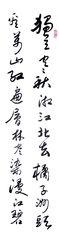 獨立寒秋湘江北去橘子洲頭
看萬山紅遍層林盡染漫江碧